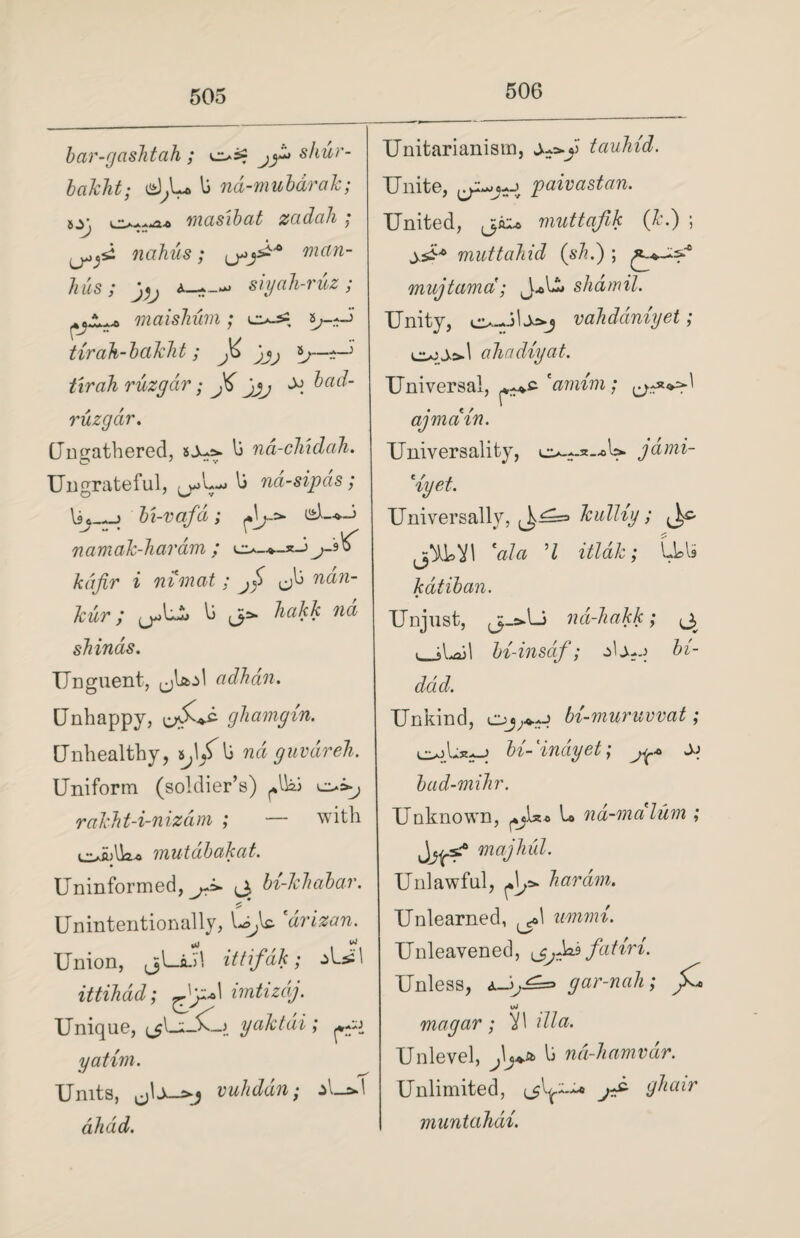 505
bar-gashtah; شور بخت shúr-
bakht; نا مبارك ná-mubárak;
مصيبت زده masíbat zadah;
نحوس nahús; منحوس man-
hús; سيه روز siyah-rúz;
ميشوم maishúm; تيره بخت
tírah-bakht; تيره روز كار
tírah rúzgár; بد روز كار bad-
rúzgár.
Ungathered, نا چيده ná-chídah.
Ungrateful, نا سپاس ná-sipás;
بيوفا bí-vafá; نمك حرام
namak-harám; كافر نعمت
káfir i ni'mat; نان كور nán-
kúr; حق نا شناس hakk ná
shinás.
Unguent, ادهان adhán.
Unhappy, غمكين ghamgín.
Unhealthy, نا كواره ná guváreh.
Uniform (soldier's) رخت نظام
rakht-i-nizám; — with
مطابقت mutábakat.
Uninformed, بى خبر bí-khabar.
Unintentionally, عارضا 'árizan.
Union, اتّفاق ittifák; اتّحاد
ittihád; امتزاج imtizáj.
Unique, يكتاى yaktái; يتيم
yatím.
Units, وحدان vuhdán; آحاد
áhád.
506
Unitarianism, توحيد tauhíd.
Unite, پيوستن paivastan.
United, متفق muttafik (k.);
متحد muttahid (sh.); مجتمع
mujtama'; شامل shámil.
Unity, وحدانيت vahdániyet;
احديت ahadíyat.
Universal, عميم 'amím; اجمعين
ajma'ín.
Universality, جامعيت jámi-
'iyet.
Universally, كلى kullíy; على
الاطلاق 'ala 'l itlák; قاطبا
kátiban.
Unjust, ناحق ná-hakk; بى
انصاف bí-insáf; بيداد bí-
dád.
Unkind, بيمروت bí-muruvvat;
بيعنايت bí-'ináyet; بد مهر
bad-mihr.
Unknown, نا معلوم ná-ma'lúm;
مجهول majhúl.
Unlawful, حرام harám.
Unlearned, امى ummí.
Unleavened, فطيرى fatírí.
Unless, كرنه gar-nah; مكر
magar; الّا illa.
Unlevel, نا هموار ná-hamvár.
Unlimited, غير منتهاى ghair
muntahái.